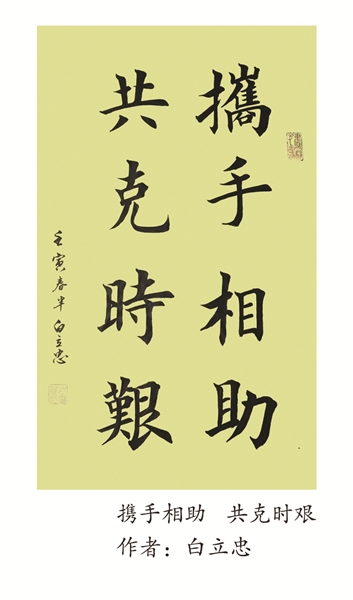 攜手相助
共克時艱
壬寅春半白立忠
携手相助 共克时艰
作者：白立忠